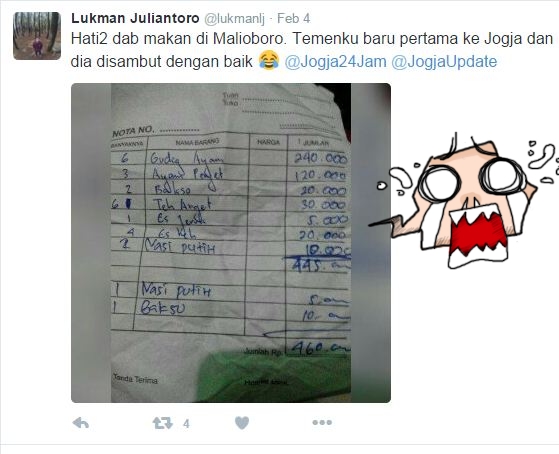 Lukman Juliantoro @lukmanlj · Feb 4
Hati2 dab makan di Malioboro. Temenku baru pertama ke Jogja dan
dia disambut dengan baik 😂 @Jogja24Jam @JogjaUpdate
Tuan
Toko
NOTA NO.
BANYAKNYA NAMA BARANG HARGA JUMLAH
6 Gudeg Ayam 240.000
3 Ayam Penyet 120.000
2 Bakso 20.000
6 Teh Anget 30.000
1 Es Jeruk 5.000
4 Es teh 20.000
2 Nasi putih 10.000
445.000
1 Nasi putih 5.000
1 Bakso 10.000
Jumlah Rp. 460.000
Tanda Terima Hormat kami,
4